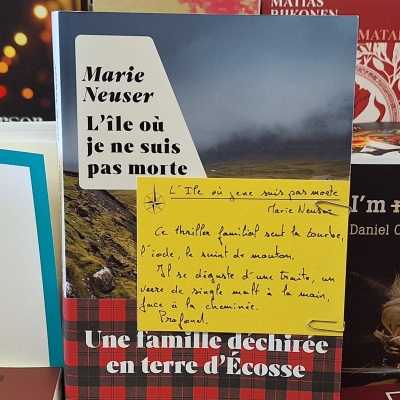 MATIAS
RIIKONEN
MATA
Marie
Neuser
L'île où
je ne suis
pas morte
L'Ile où je ne suis pas morte
Marie Neuser
Ce thriller familial sent la tourbe,
l'iode, le suint de mouton.
Il se déguste d'une traite, un
verre de single malt à la main,
face à la cheminée.
Profond.
Une famille déchirée
en terre d'Écosse
I'm
Daniel